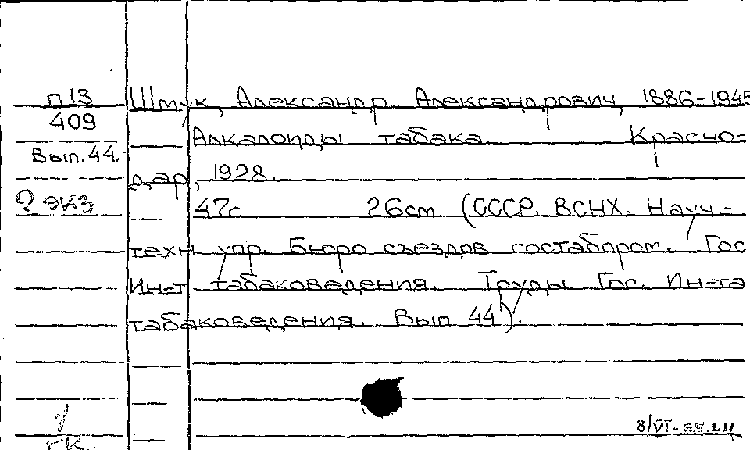 П13 Шмук, Александр Александрович, 1886-1945
409 Алкалоиды табака. Красно-
Вып. 44. дар, 1928.
2 экз 47с 26см (СССР. ВСНХ. Науч.-
техн. упр. Бюро съездов гостабпром. Гос.
Ин-т табаковедения. Труды Гос. Ин-та
табаковедения. Вып 44).
ГК.
8/VI-